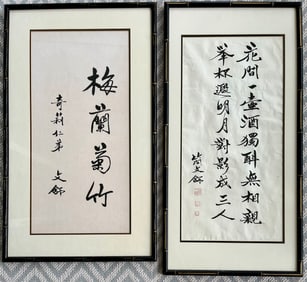 梅蘭菊竹
奇莉仁弟
花間一壺酒獨酌無相親
舉杯邀明月對影成三人